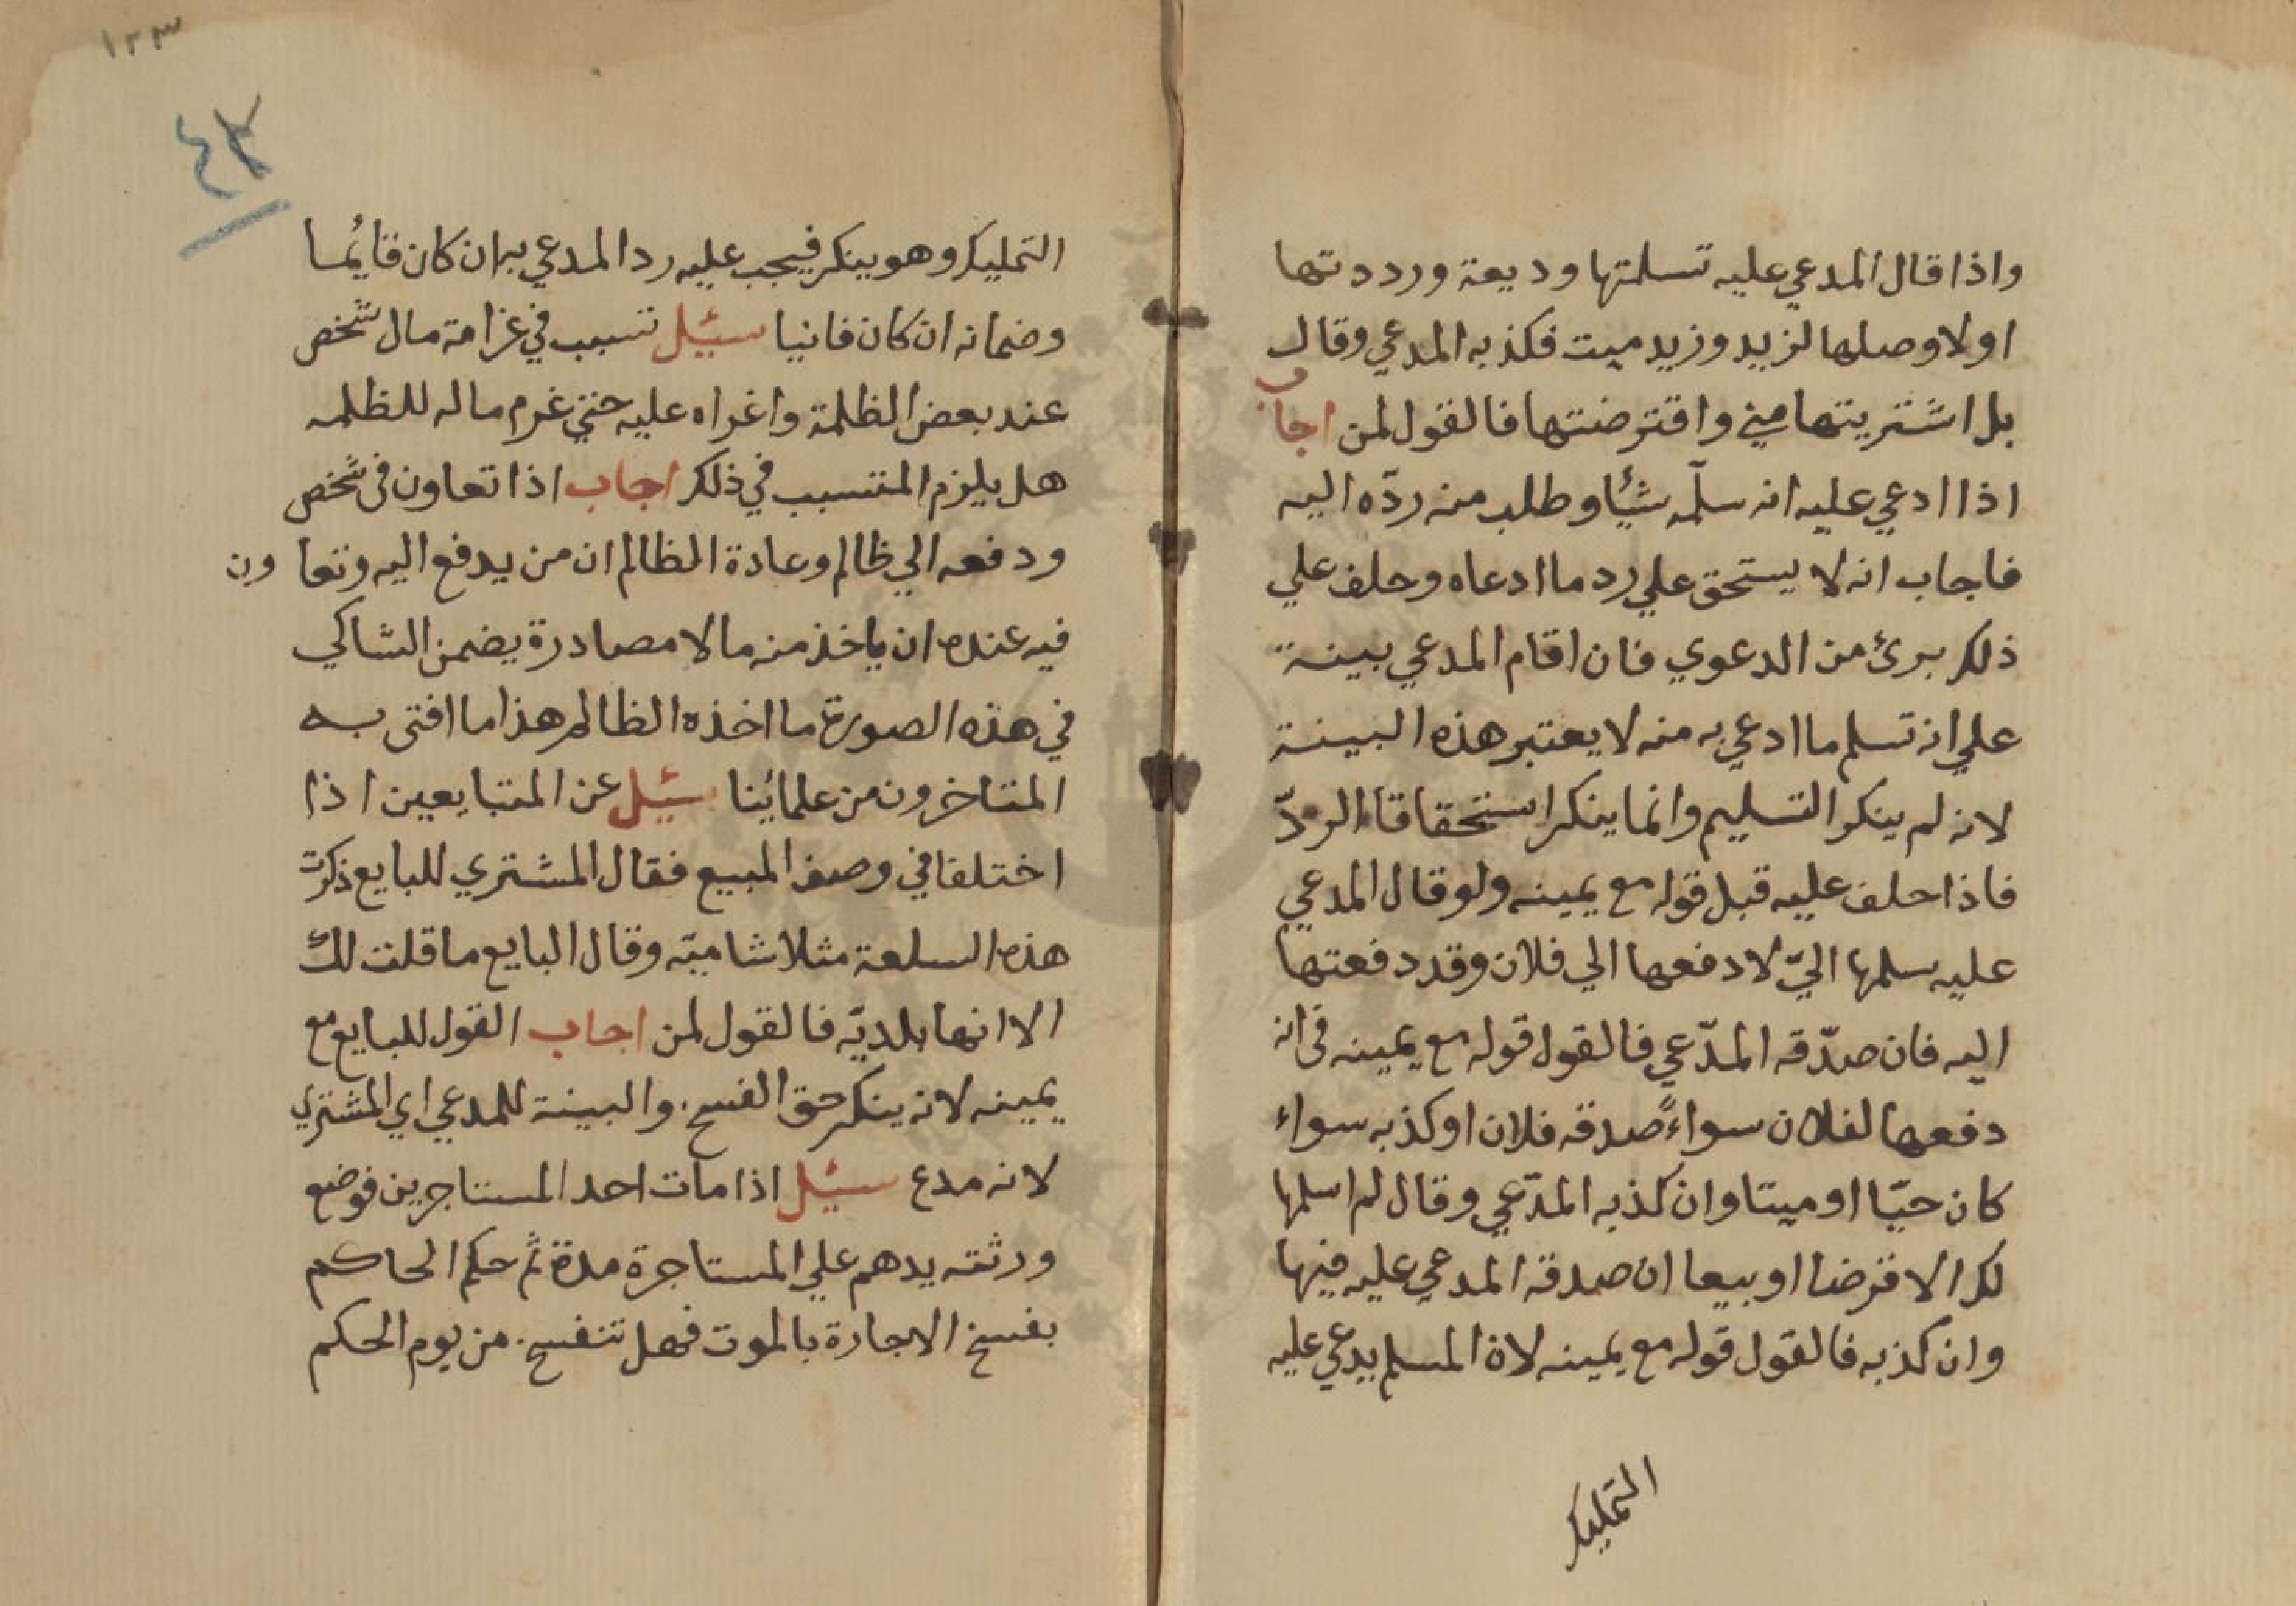 واذا قال المدعي عليه تسلمتها وديعة ورددتها
اولا وصلها لزيد وزيد ميت فكذبه المدعي وقال
بل اشتريتها مني واقترضتها فالقول لمن اجاب
اذا ادعي عليه انه سلّمه شيئا وطلب منه ردّه اليه
فاجاب انه لا يستحق علي رد ما ادعاه وحلف علي
ذلك برئ من الدعوي فان اقام المدعي بينة
علي انه تسلم ما ادعي به منه لا يعتبر هذه البينة
لانه لم ينكر التسليم وانما ينكر استحقاقا الردّ
فاذا حلف عليه قبل قوله مع يمينه ولو قال المدعي
عليه سلمها اليّ لا دفعها الي فلان وقد دفعتها
اليه فان صدّقه المدّعي فالقول قوله مع يمينه في انه
دفعها لفلان سواءً صدقه فلان او كذبه سواء
كان حيّا او ميتا وان كذبه المدّعي وقال لم اسلمها
لك الا قرضا او بيعا ان صدقه المدعي عليه فيها
وان كذبه فالقول قوله مع يمينه لان المسلم يدعي عليه
التمليك
١٢٣
التمليك وهو ينكر فيجب عليه رد المدعي به ان كان قائما
وضمانه ان كان فانيا سئيل تسبب في غرامة مال شخص
عند بعض الظلمة واغراه عليه حتي غرم ماله للظلمه
هل يلزم المتسبب في ذلك اجاب اذا تعاون في شخص
ودفعه الي ظالم وعادة المظالم ان من يدفع اليه وتعاون
فيه عنده ان ياخذ منه مالا مصادرة يضمن الشاكي
في هذه الصورة ما اخذه الظالم هذا ما افتى به
المتاخرون من علمائنا سئيل عن المتبايعين اذا
اختلفا في وصف المبيع فقال المشتري للبايع ذكرت
هذه السلعة مثلا شاميّه وقال البايع ما قلت لك
الا انها بلديّه فالقول لمن اجاب القول للبايع مع
يمينه لانه ينكر حق الفسخ والبينة للمدعي اي المشتري
لانه مدع سئيل اذا مات احد المستاجرين فوضع
ورثته يدهم علي المستاجرة مدة ثم حكم الحاكم
بفسخ الاجارة بالموت فهل تنفسخ من يوم الحكم